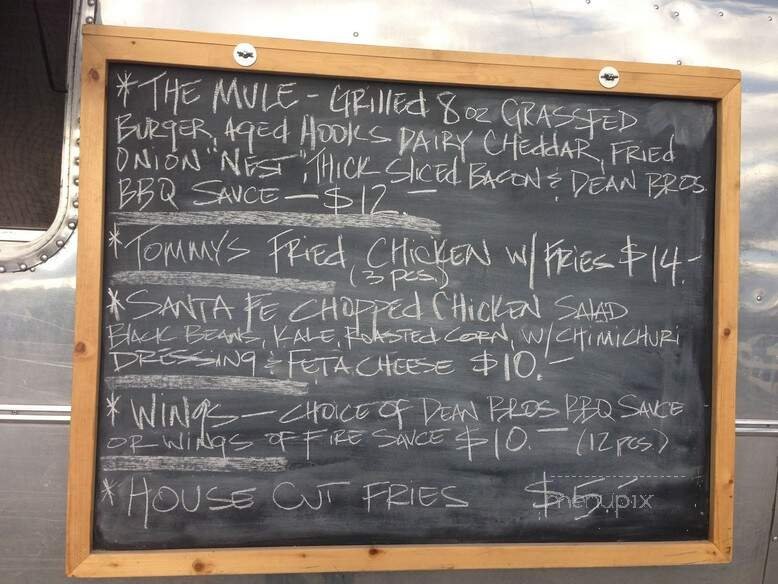 * THE MULE - GRILLED 8 OZ GRASSFED
BURGER, AGED HOOKS DAIRY CHEDDAR, FRIED
ONION "NEST", THICK SLICED BACON & DEAN BROS
BBQ SAUCE - $12.-
* TOMMY'S FRIED CHICKEN W/ FRIES $14.-
(3 PCS.)
* SANTA FE CHOPPED CHICKEN SALAD
BLACK BEANS, KALE, ROASTED CORN, W/ CHIMICHURI
DRESSING & FETA CHEESE $10.-
* WINGS - CHOICE OF DEAN BROS BBQ SAUCE
OR WINGS OF FIRE SAUCE $10.- (12 PCS)
* HOUSE CUT FRIES $5.-
menupix